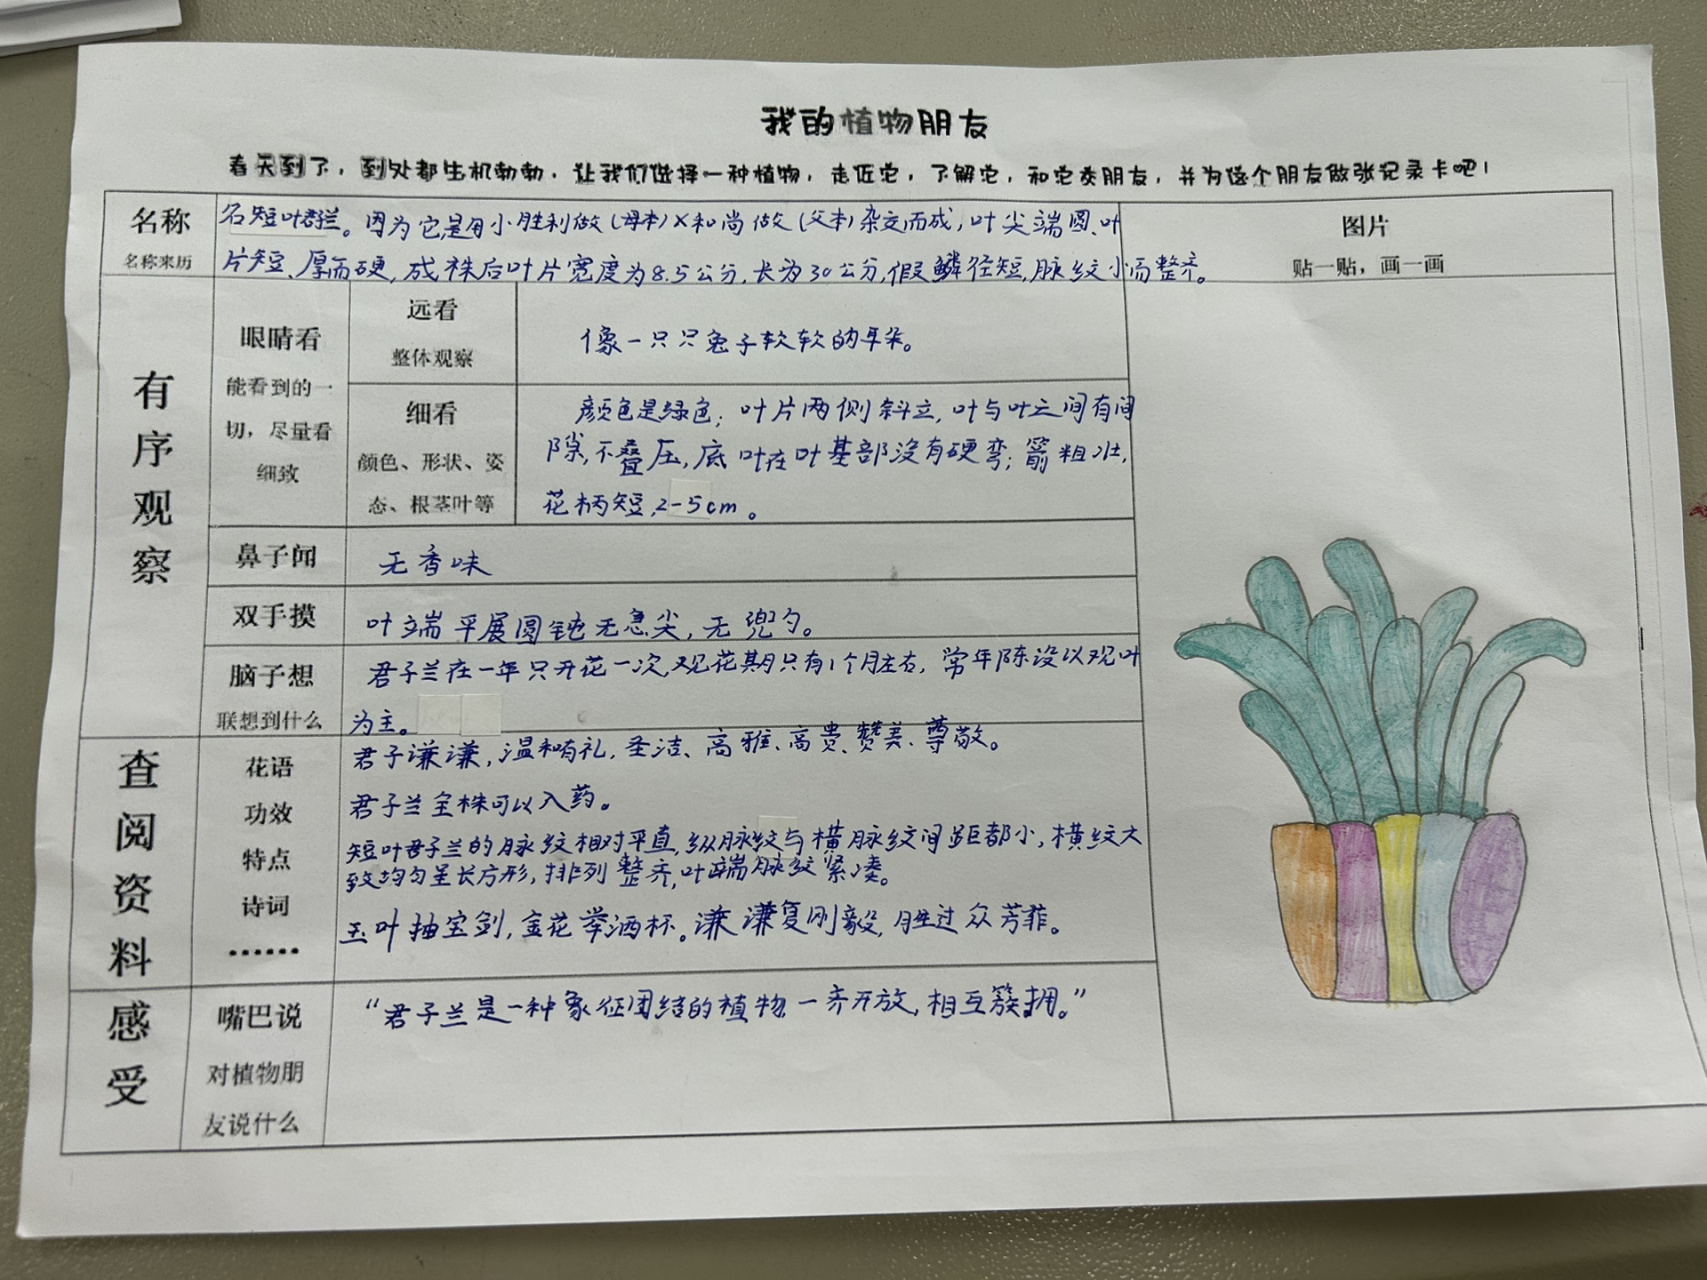 我的植物朋友
春天到了，到处都生机勃勃，让我们选择一种植物，走近它，了解它，和它交朋友，并为这个朋友做张记录卡吧！
名称
名称来历
名短叶君兰。因为它是用小胜利做(母本)×和尚做(父本)杂交而成，叶尖端圆、叶
片短、厚而硬，成株后叶片宽度为8.5公分，长为30公分，假鳞径短，脉纹小而整齐。
图片
贴一贴，画一画
有序观察
眼睛看
能看到的一
切，尽量看
细致
远看
整体观察
像一只只兔子软软的耳朵。
细看
颜色、形状、姿
态、根茎叶等
颜色是绿色；叶片两侧斜立，叶与叶之间有间
隙，不叠压，底叶在叶基部没有硬弯；箭粗壮，
花柄短，2-5cm。
鼻子闻
无香味
双手摸
叶端平展圆钝无急尖，无兜勺。
脑子想
联想到什么
君子兰在一年只开花一次，观花期只有1个月左右，常年陈设以观叶
为主。
查阅资料
花语
功效
特点
诗词
……
君子谦谦，温和有礼，圣洁、高雅、高贵、赞美、尊敬。
君子兰全株可以入药。
短叶君子兰的脉纹相对平直，纵脉纹与横脉纹间距都小，横纹大
致均匀呈长方形，排列整齐，叶端脉纹紧凑。
玉叶抽宝剑，金花举酒杯。谦谦复刚毅，胜过众芳菲。
感受
嘴巴说
对植物朋
友说什么
“君子兰是一种象征团结的植物一齐开放，相互簇拥。”